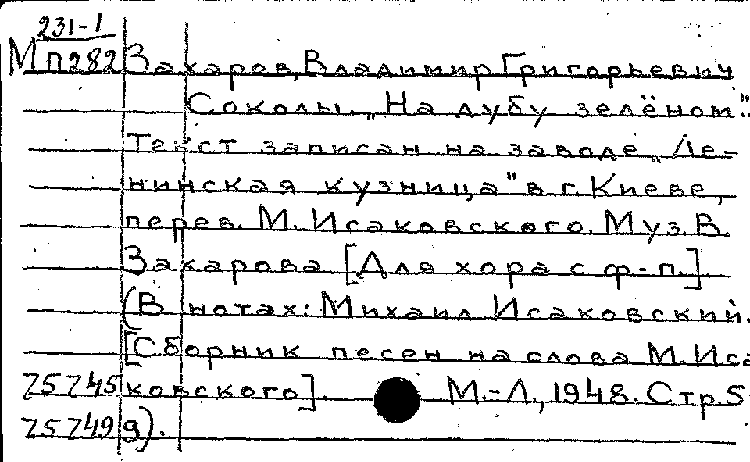 231-1
Мп282 Захаров, Владимир Григорьевич
Соколы. „На дубу зелёном..."
Текст записан на заводе „Ле-
нинская кузница" в г. Киеве,
перев. М. Исаковского. Муз. В.
Захарова [Для хора с ф-п.]
(В нотах: Михаил Исаковский.
[Сборник песен на слова М. Иса
75745 ковского]. М.-Л., 1948. Стр. 5
75749 9).